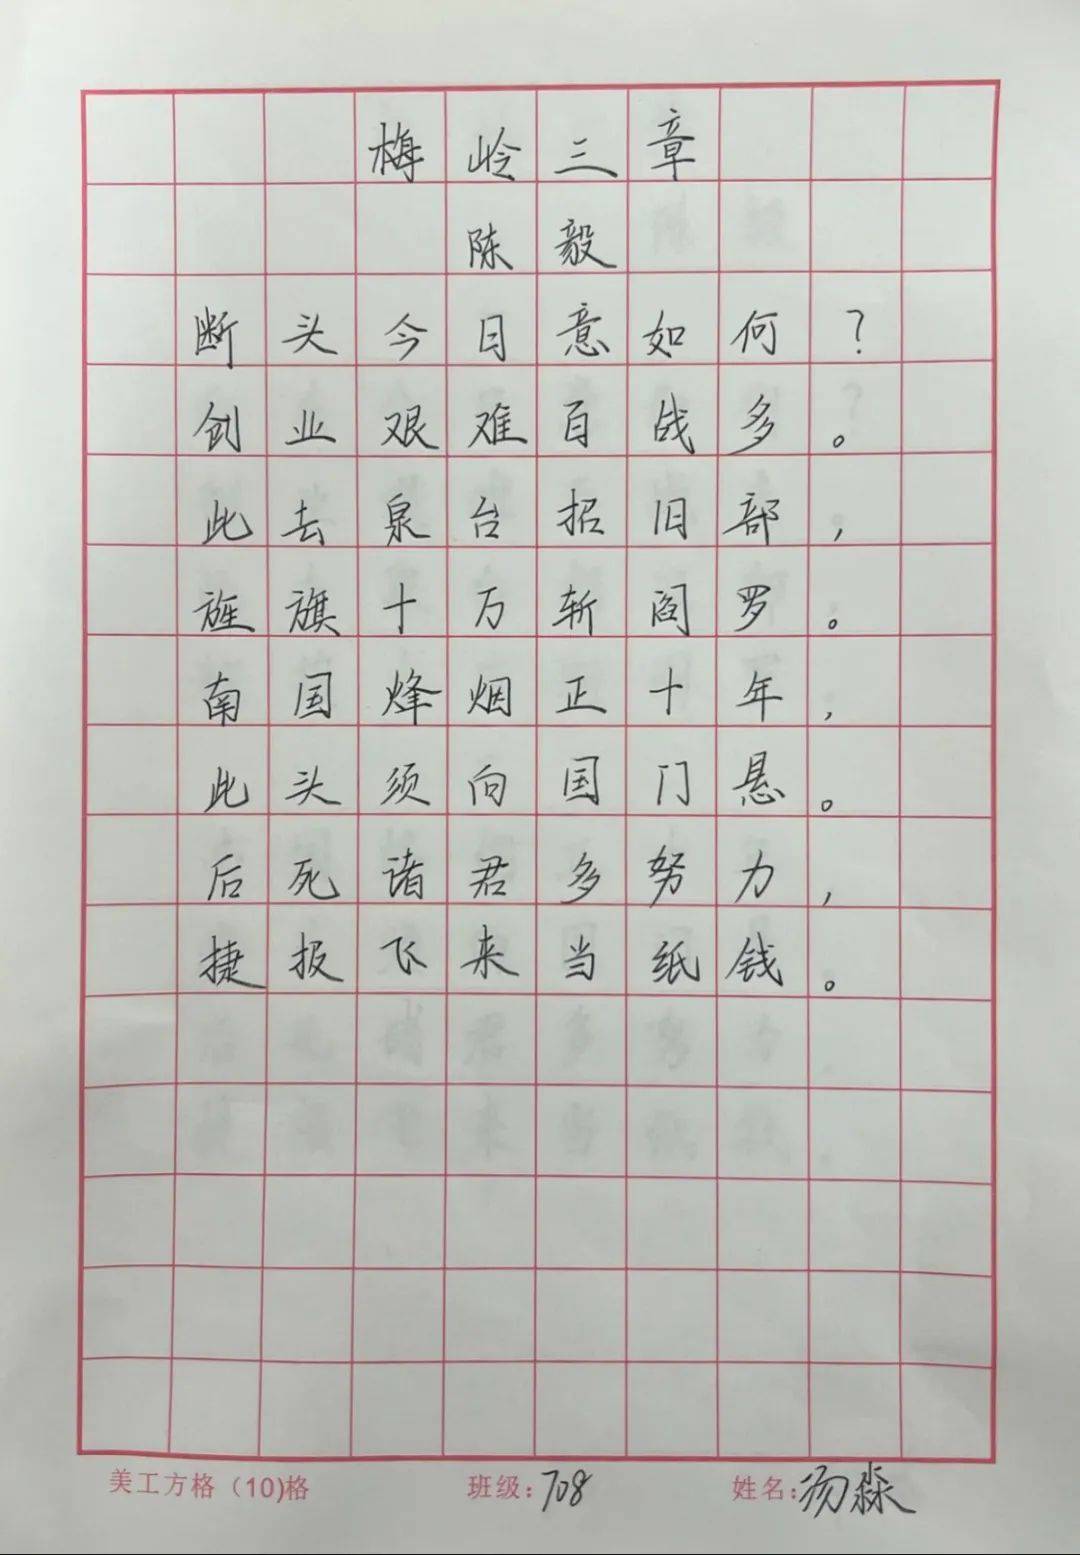 梅岭三章
陈毅
断头今日意如何?
创业艰难百战多。
此去泉台招旧部,
旌旗十万斩阎罗。
南国烽烟正十年,
此头须向国门悬。
后死诸君多努力,
捷报飞来当纸钱。
美工方格(10)格 班级:708 姓名:汤淼